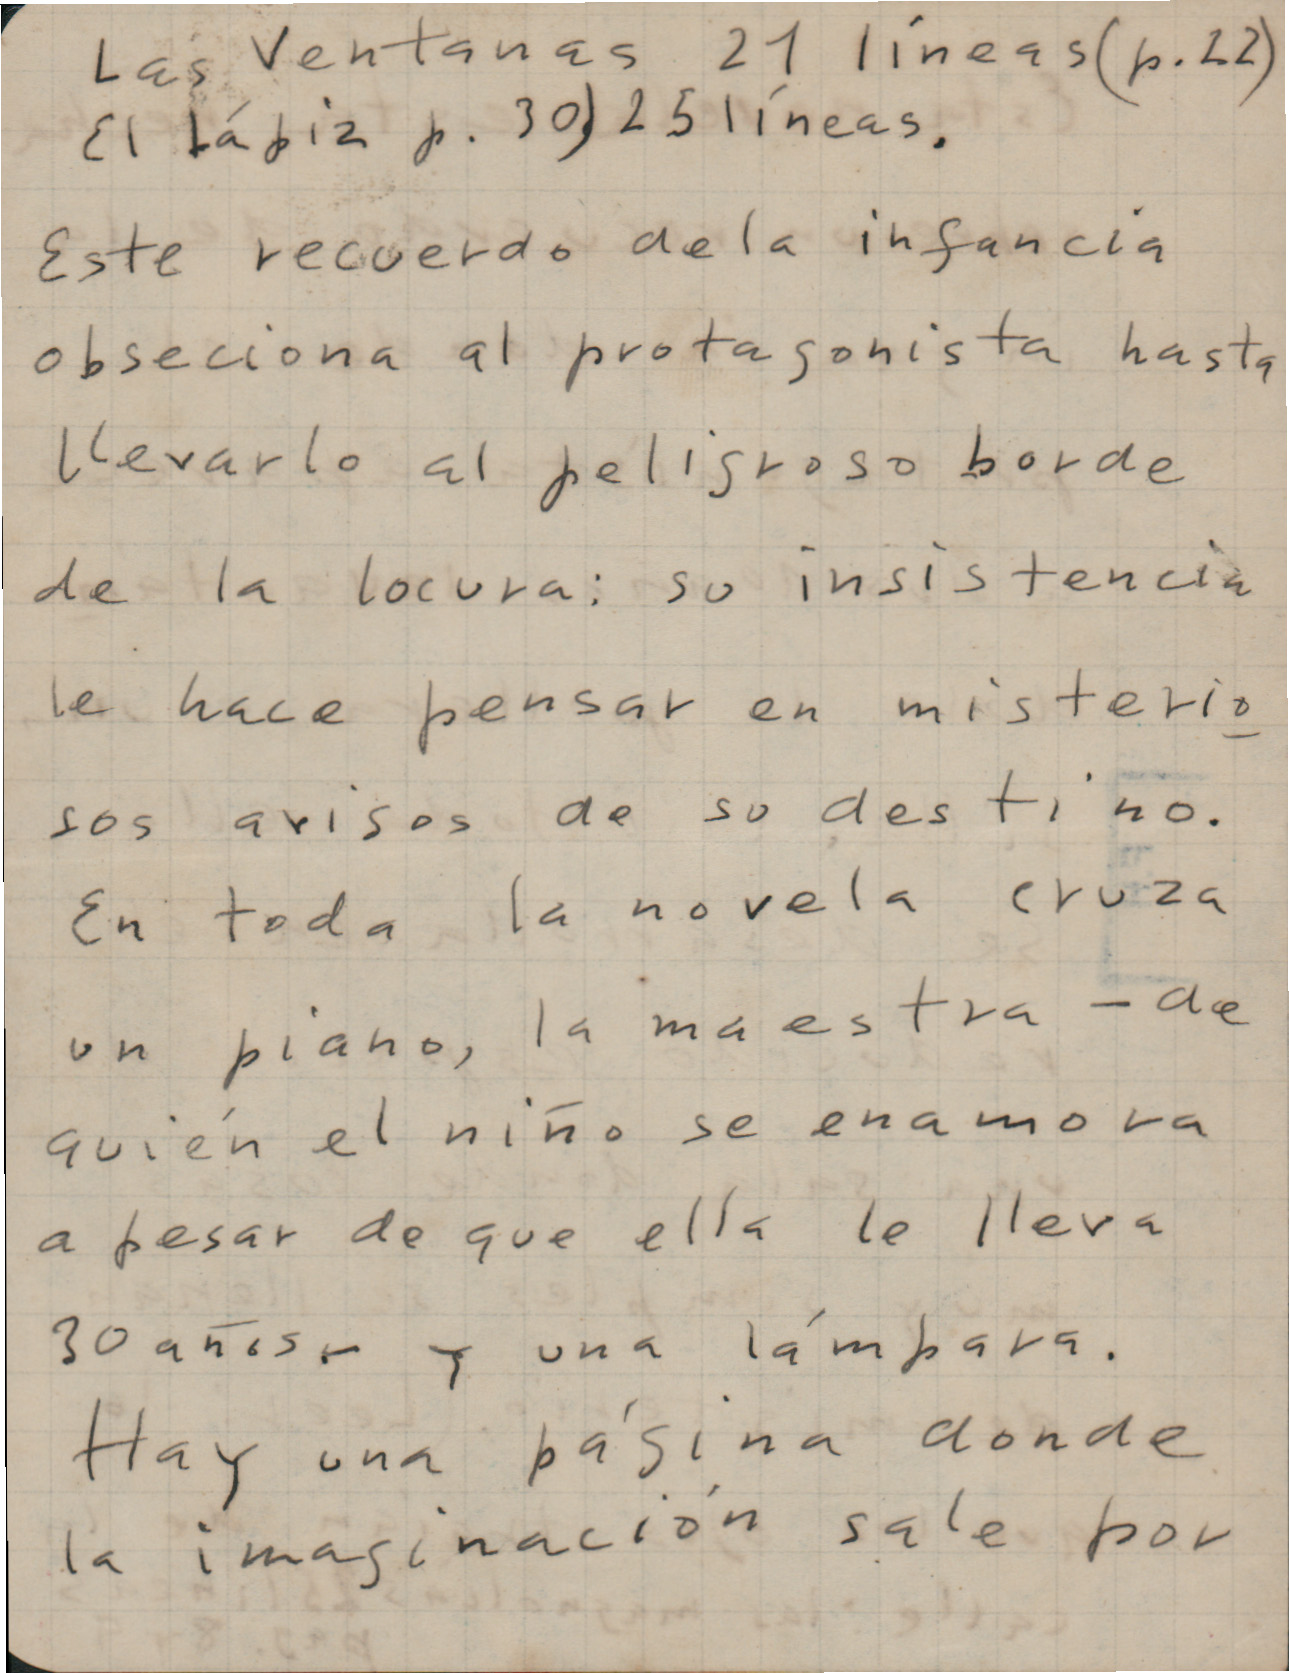 Las Ventanas 21 líneas (p. 22)
El Lápiz p. 30) 25 líneas.
Este recuerdo de la infancia
obseciona al protagonista hasta
llevarlo al peligroso borde
de la locura: su insistencia
le hace pensar en misterio
sos avisos de su destino.
En toda la novela cruza
un piano, la maestra - de
quién el niño se enamora
a pesar de que ella le lleva
30 años - y una lámpara.
Hay una página donde
la imaginación sale por